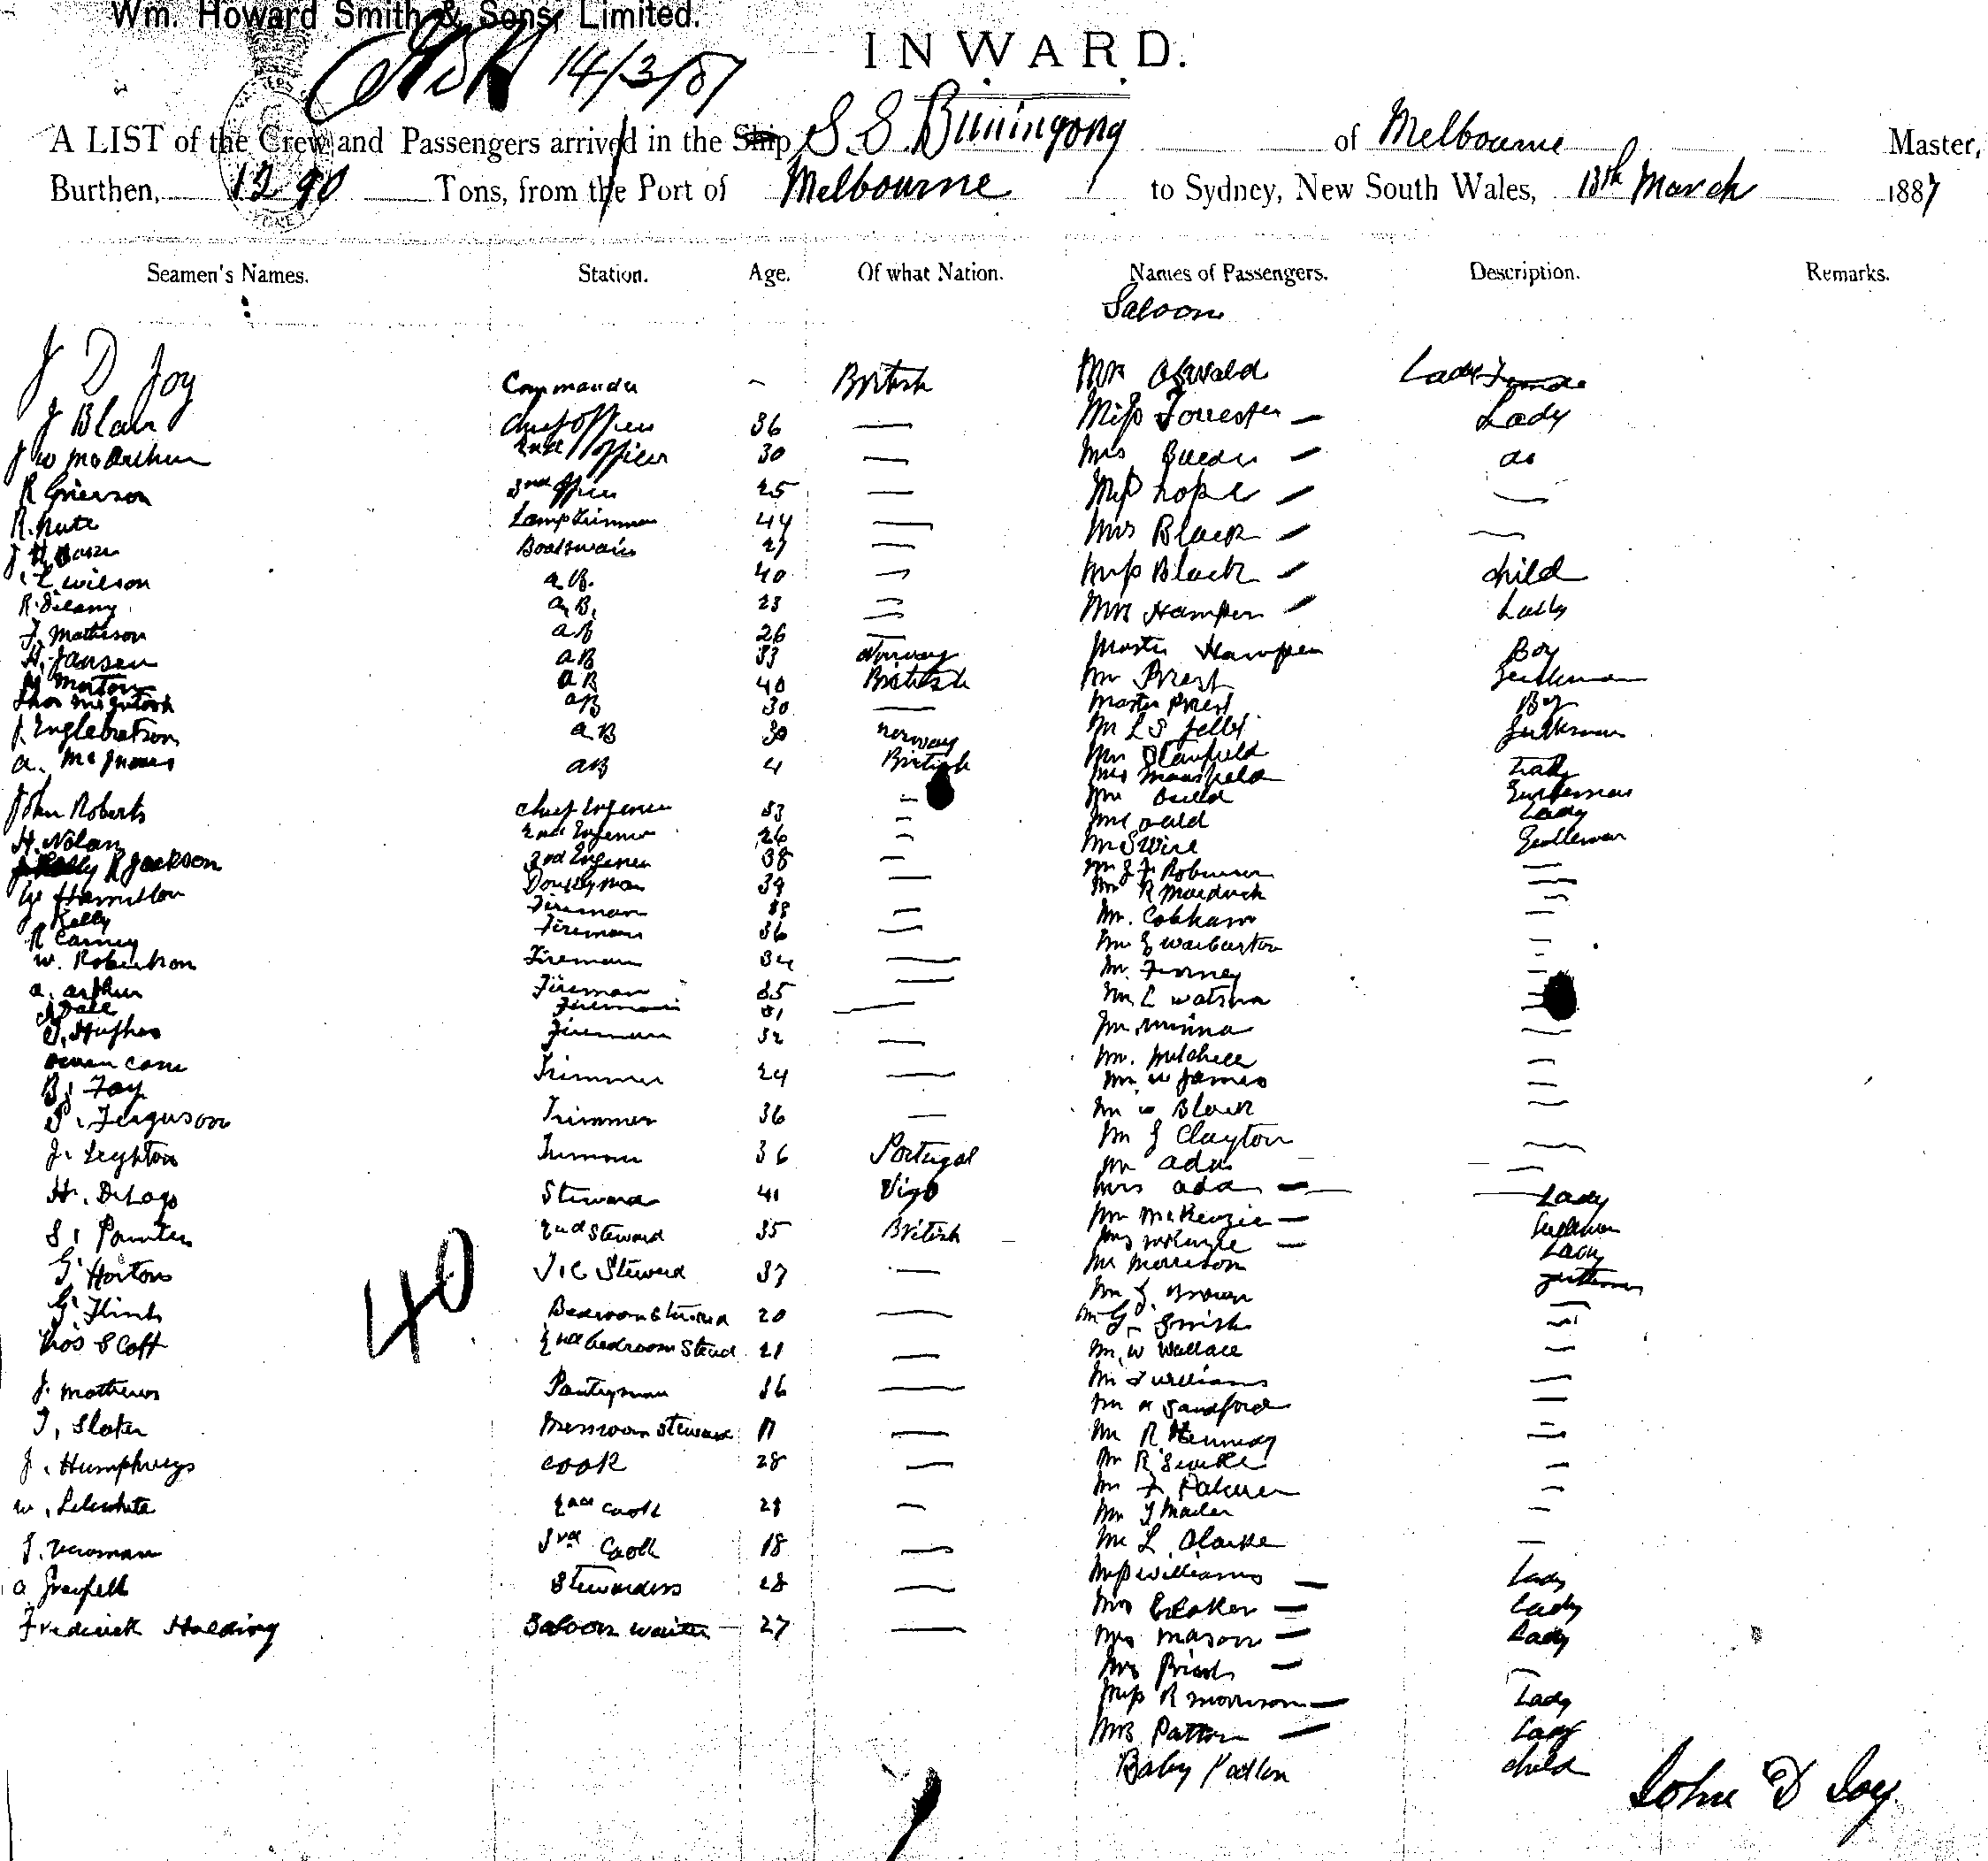 Wm. Howard Smith & Sons, Limited.
14/3/87
INWARD.
A LIST of the Crew and Passengers arrived in the Ship S.S. Buningong of Melbourne Master,
Burthen, 1290 Tons, from the Port of Melbourne to Sydney, New South Wales, 13th March 1887
Seamen's Names. Station. Age. Of what Nation. Names of Passengers. Description. Remarks.
Saloon
J D Joy Commander British Mrs Oswald Lady
J Blair Chief Officer 36 — Miss Forrester — Lady
J W McArthur 2nd Officer 30 — Mrs — do
R Grierson 3rd Officer 25 — Miss Hope — —
R. Nute Lamptrimmer 44 — Mrs Black — —
J H Boatswain 27 —
Wilson A.B. 40 — Miss Black — child
R. Delany A.B. 23 — Mrs Hampen — Lady
J. Matheson AB 26 — Master Hampen Boy
H. Jansen AB 33 Norway Mr Priest Gentleman
Morton AB 40 British Master Priest Boy
Thos McIntosh AB 30 — Mr L S Jelly Gentleman
J. Englebretson AB 30 Norway Mr Stanfield
A. McInnes AB 4 British Mrs Mansfield Lady
John Roberts Chief Engineer 33 — Mr Auld Gentleman
Mrs Auld Lady
H. Nolan 2nd Engineer 26 — Mr Swire Gentleman
R Jackson 3rd Engineer 38 — Mr J. F. Robinson —
Hamilton Donkeyman 39 — Mr R Murdoch —
J Kelly Fireman — Mr. Cobham —
R Carney Fireman 36 — Mr E Warburton —
W. Robertson Fireman 34 — Mr. Finney —
A. Arthur Fireman 35 — Mr L Watson —
Dale Fireman 31 —
T. Hughes Fireman 32 — Mr —
Owen Cane Mr. Mitchell —
B. Foy Trimmer 24 — Mr W James —
P. Ferguson Trimmer 36 — Mr W Black —
J. Leyhton Trimmer 36 Portugal Mr J Clayton —
Mr Ada —
H. DeLago Steward 41 Vigo Mrs Ada — Lady
S. Painter 2nd Steward 35 British Mr McKenzie — Gentleman
Mrs McKenzie — Lady
G. Horton Steward 37 — Mr Morrison Gentleman
Mr J. Brown —
G. Flint Bedroom Steward 20 — Mr G. Smith —
Thos Scott 2nd bedroom Stead 21 — Mr. W Wallace —
J. Mathews Pantryman 36 — Mr J Williams —
Mr A Sandford —
T. Slater Messroom Steward 17 — Mr R Kennedy —
J. Humphreys Cook 28 — Mr R —
W. Lilewhite 2nd Cook 28 — Mr F Palmer —
Mr J Mailer —
J. Newman 3rd Cook 18 — Mr L. Clarke —
A Grenfell Stewardess 28 — Miss Williams — Lady
Frederick Holding Saloon Waiter 27 — Mrs Croker — Lady
Mrs Mason — Lady
Mrs Priest — —
Miss R Morrison — Lady
Mrs Patton — Lady
Baby Patton child
40
John D Joy.